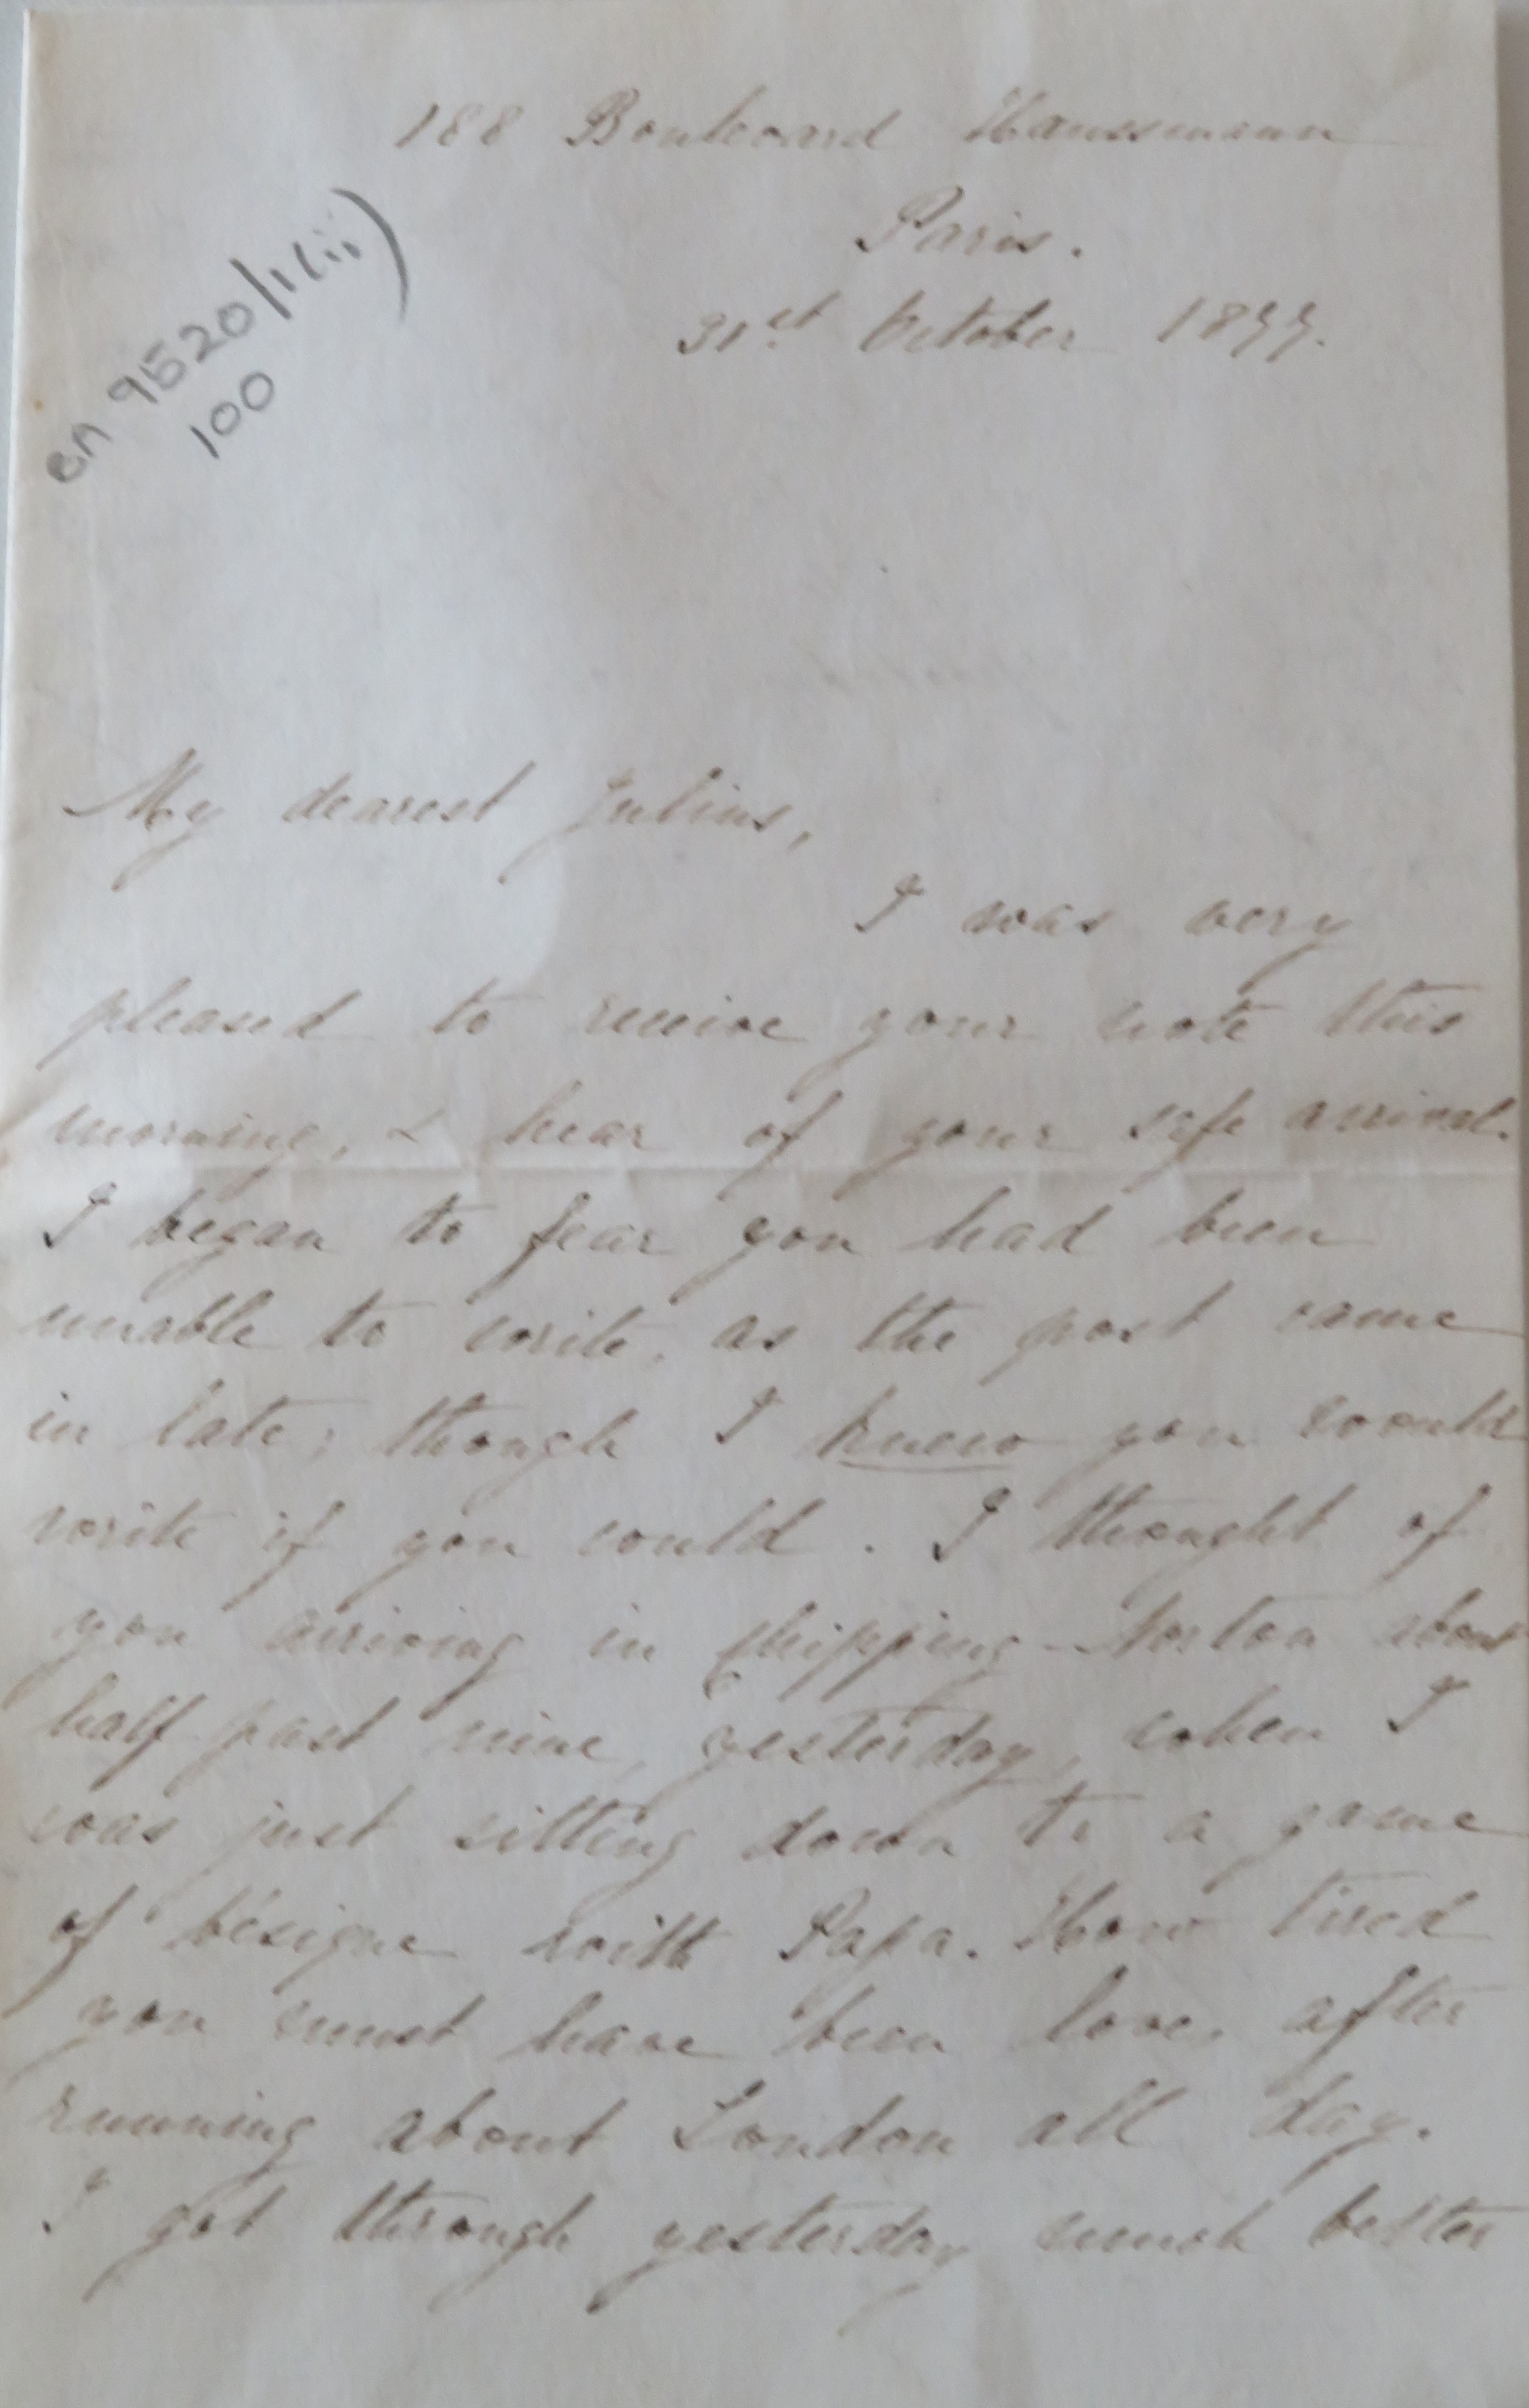 188 Boulevard Haussmann
Paris.
31st October 1877.
BA 9520/11(ii)
100
My dearest Julius,
I was very
pleased to receive your note this
morning, & hear of your safe arrival.
I began to fear you had been
unable to write, as the post came
in late; though I knew you would
write if you could. I thought of
you arriving in Chipping-Norton about
half past nine, yesterday, when I
was just sitting down to a game
of bésique with Papa. How tired
you must have been love, after
running about London all day.
I got through yesterday much better